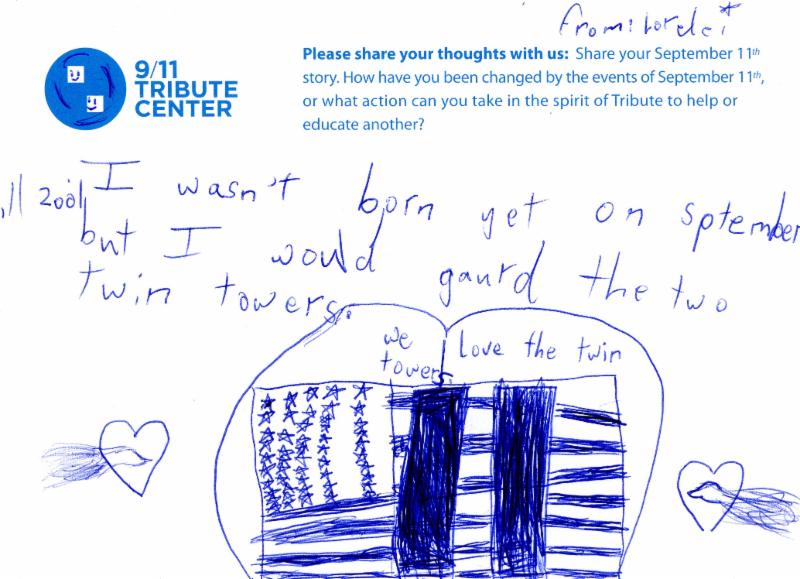 From: Lorelei*
9/11
TRIBUTE
CENTER
Please share your thoughts with us: Share your September 11th
story. How have you been changed by the events of September 11th,
or what action can you take in the spirit of Tribute to help or
educate another?
I wasn't born yet on sptember
,11 2001,
but I would gaurd the two
twin towers.
we Love the twin
towers.